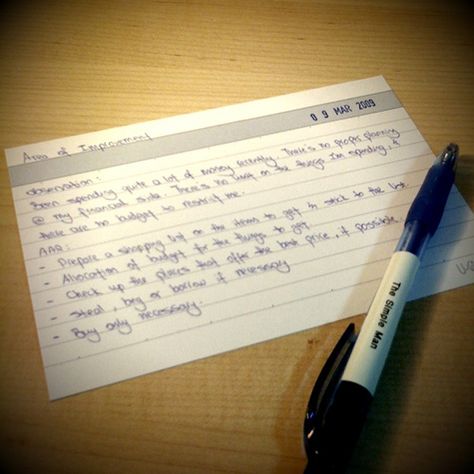 09 MAR 2009
Area of Improvement
Observation:
Been spending quite a lot of money recently. There's no proper planning
@ my financial side. There's no limit on the things I'm spending, &
there are no budget to restrict me.
AAA:
- Prepare a shopping list on the items to get & stick to the list.
- Allocation of budget for the things to get.
- Check up the places that offer the best price, if possible.
- Steal, beg or borrow if necessary
- Buy only necessary.
The Simple Man